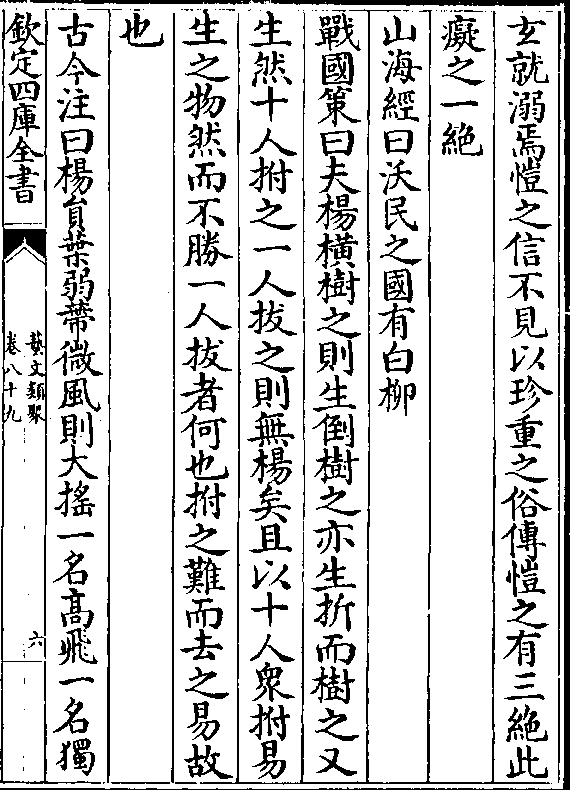 玄就溺焉愷之信不見以珍重之俗傳愷之有三絶此
癡之一絶
山海經曰沃民之國有白柳
戰國策曰夫楊橫樹之則生倒樹之亦生折而樹之又
生然十人拊之一人拔之則無楊矣且以十人衆拊易
生之物然而不勝一人拔者何也拊之難而去之易故
也
古今注曰楊負葉弱蔕微風則大搖一名髙飛一名獨
欽定四庫全書
藝文類聚
卷八十九
六